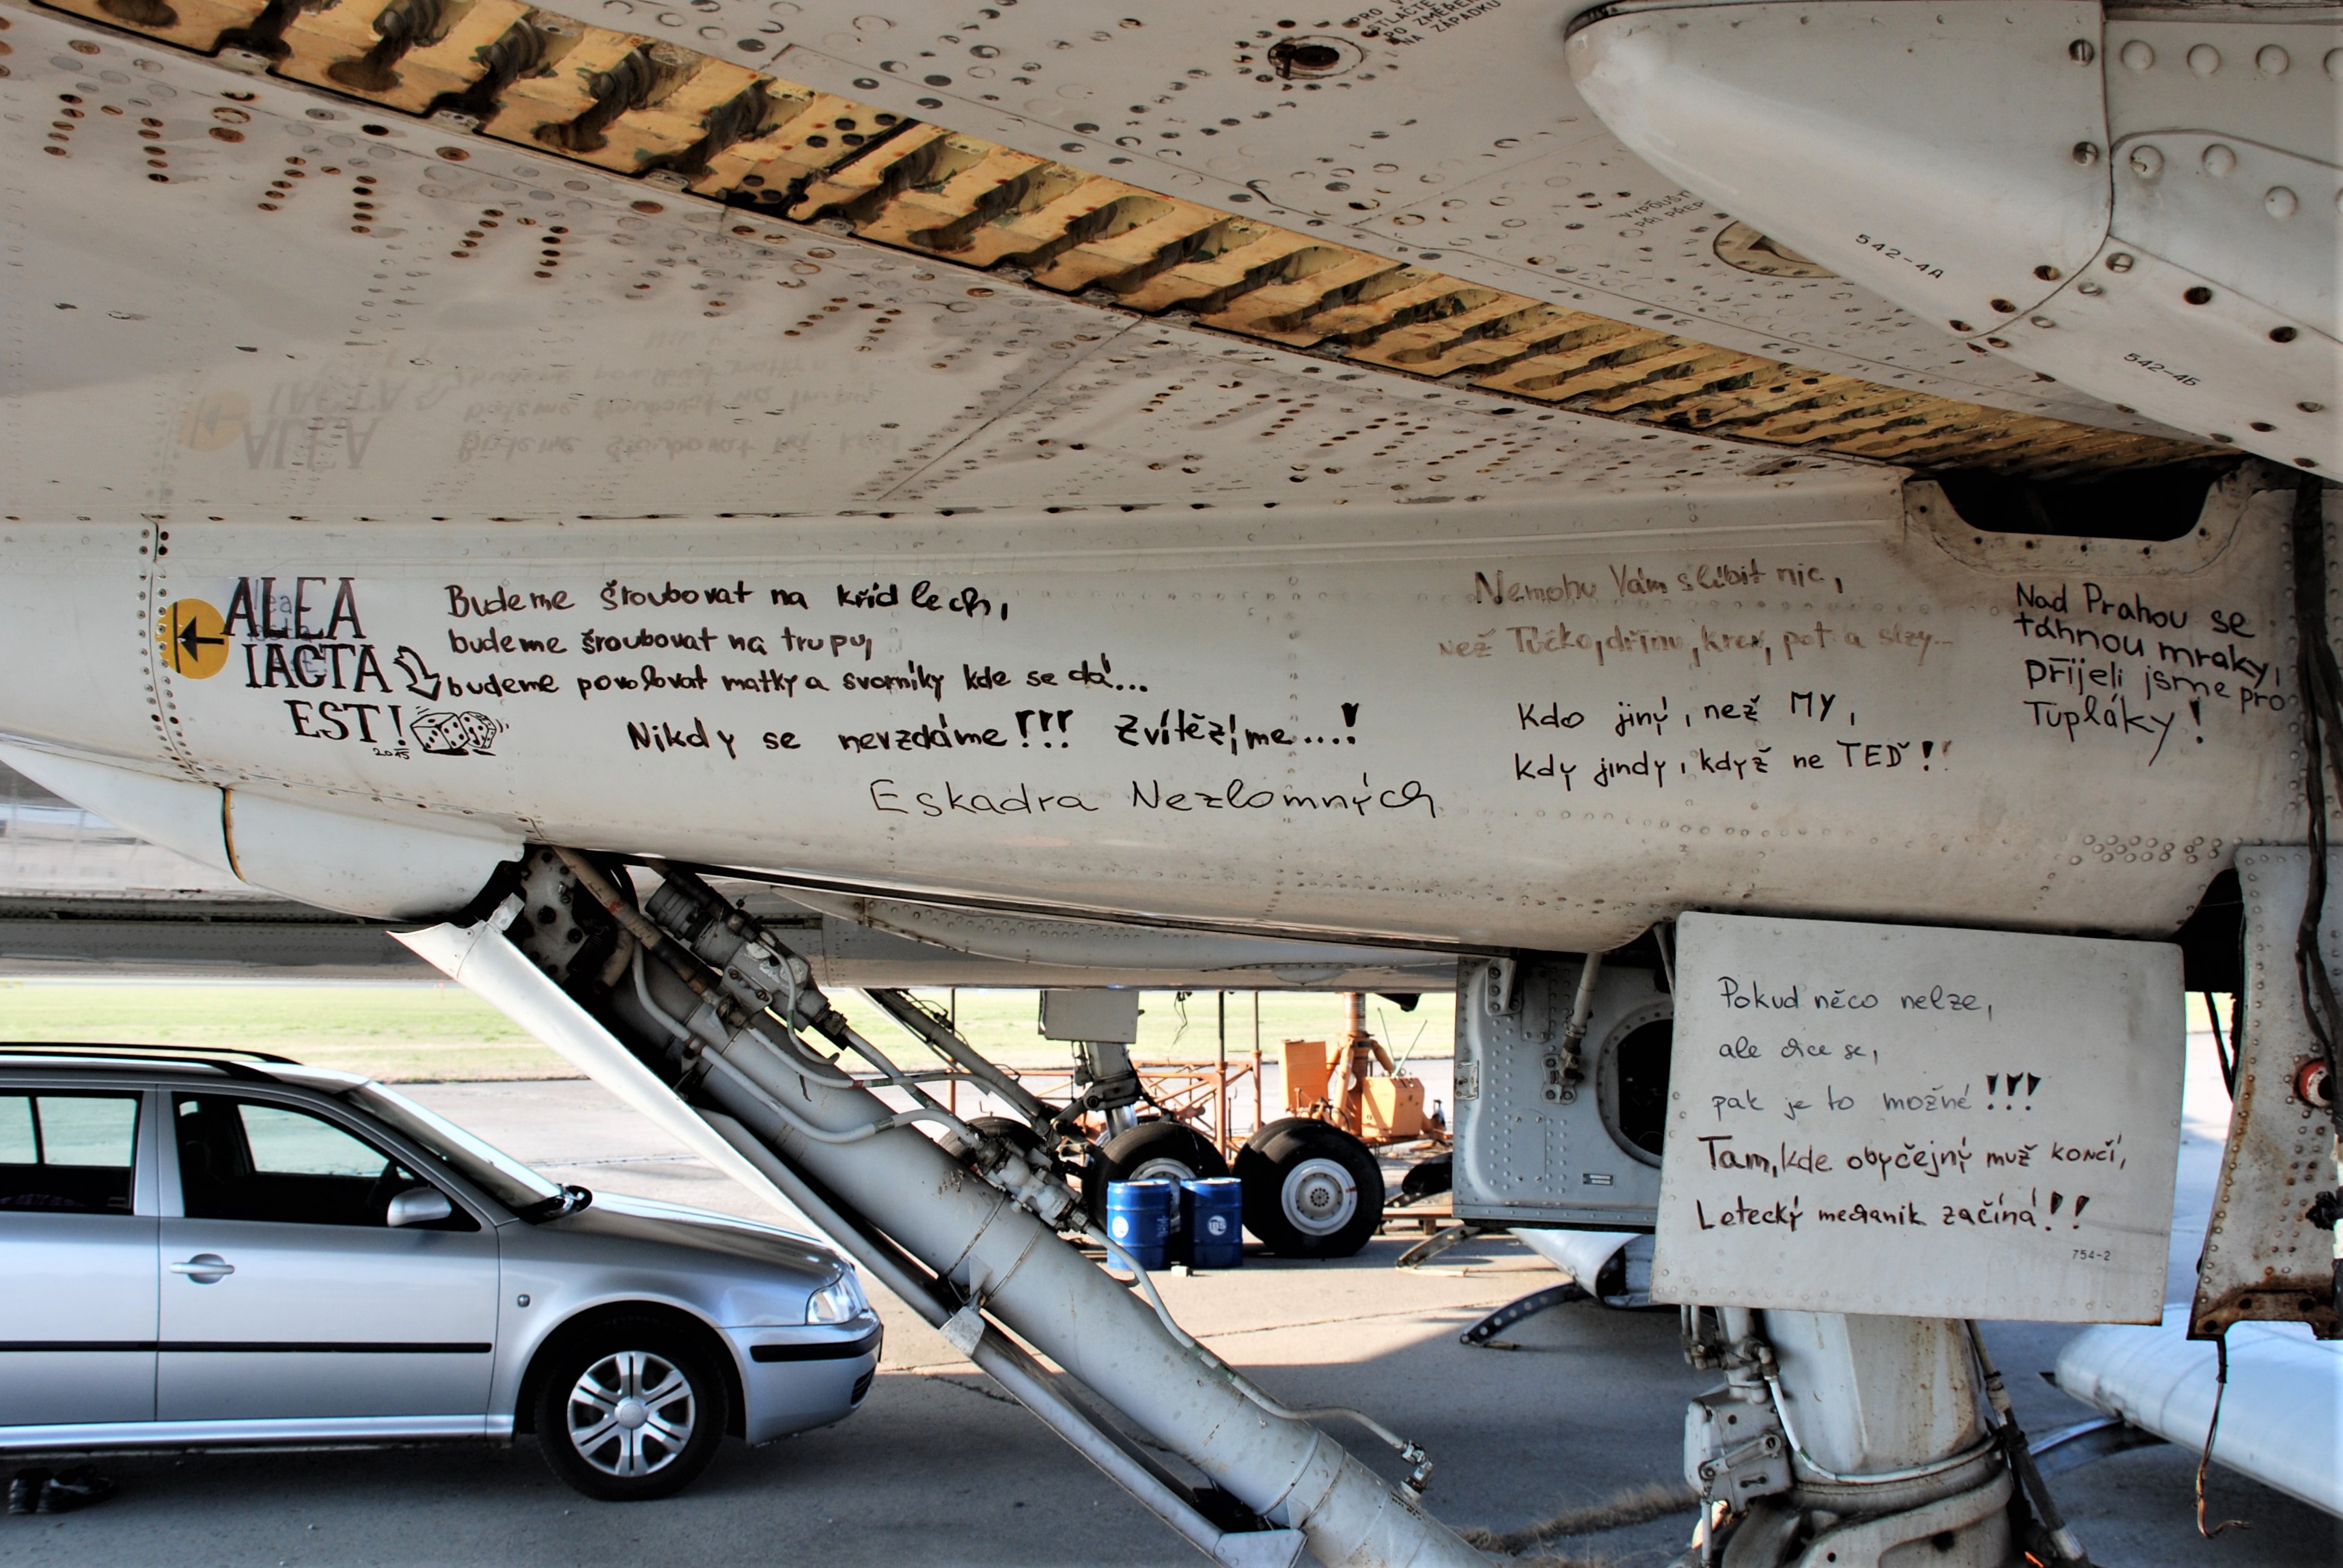 STLAČTE
PO ZMĚŘEN
NA ZÁPADKU
VYPOUŠT
PŘI PŘEP
542-4A
542-4B
ALEA
IACTA
EST!
2015
Budeme šroubovat na křídlech,
budeme šroubovat na trupu,
budeme povolovat matky a svorníky kde se dá...
Nikdy se nevzdáme!!! Zvítězíme....!
Eskadra Nezlomných
Nemohu Vám slíbit nic,
než Tučko, dřinu, krev, pot a slzy...
Kdo jiný, než MY,
Kdy jindy, když ne TEĎ!!
Nad Prahou se
táhnou mraky,
přijeli jsme pro
Tupláky!
Pokud něco nelze,
ale chce se,
pak je to možné!!!
Tam, kde obyčejný muž končí,
Letecký mechanik začíná!!
754-2